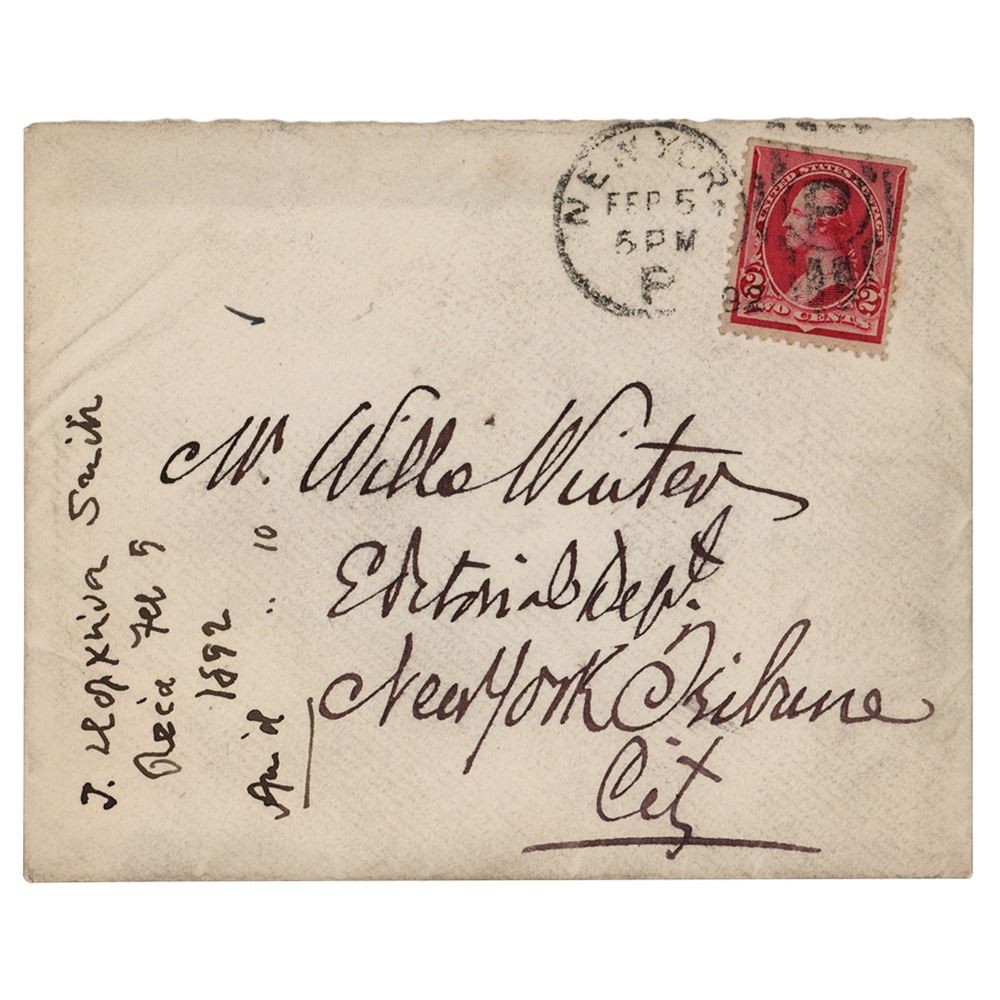 NEW YORK
FEB 5
5 PM
P
92
UNITED STATES POSTAGE
2 2
TWO CENTS
Mr. Willie Winter
Editorial Dept.
New York Tribune
City
J. Hopkins Smith
Rec'd Feb 5
1892
Ans'd " 10